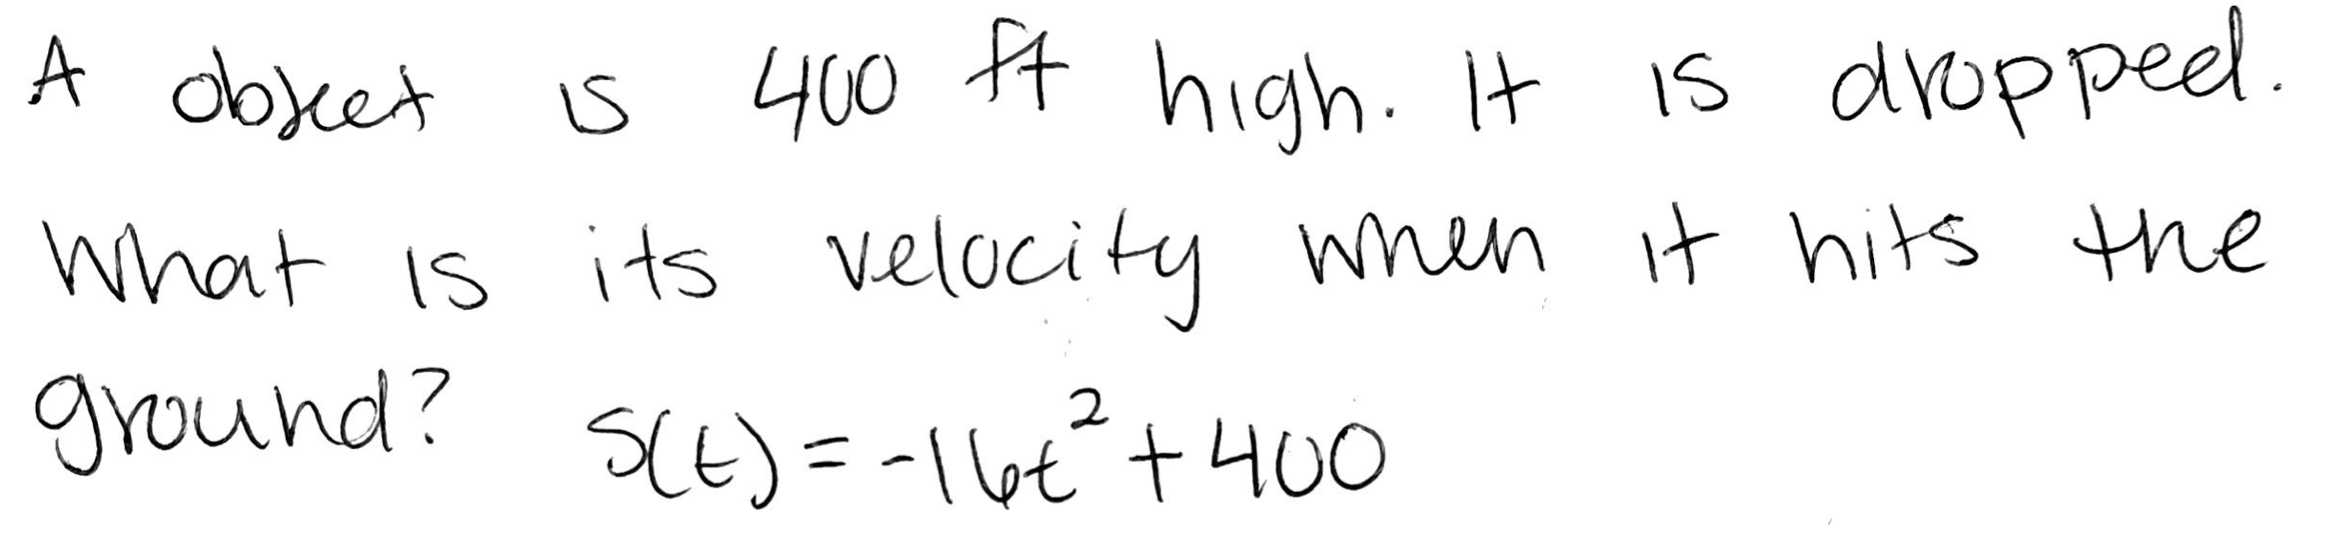 A object is 400 ft high. It is dropped.
What is its velocity when it hits the
ground? S(t) = -16t² + 400